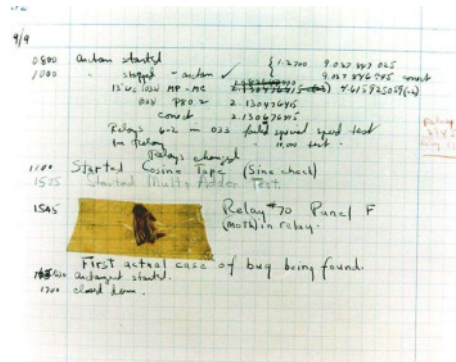 9/9
0800 antan started
1000 " stopped - antan ✓
{ 1.2700 9.037 847 025
9.037 846 995 correct
13" uc (032) MP-MC 2.130476415 4.615925059(-2)
(033) PRO 2 2.130476415
correct 2.130676415
Relays 6-2 in 033 failed special speed test
in relay " 10.000 test.
Relays changed
1100 Started Cosine Tape (Sine check)
1525 Started Mult+Adder Test.
1545 Relay #70 Panel F
(moth) in relay.
First actual case of bug being found.
1630 antangent started.
1700 closed down.